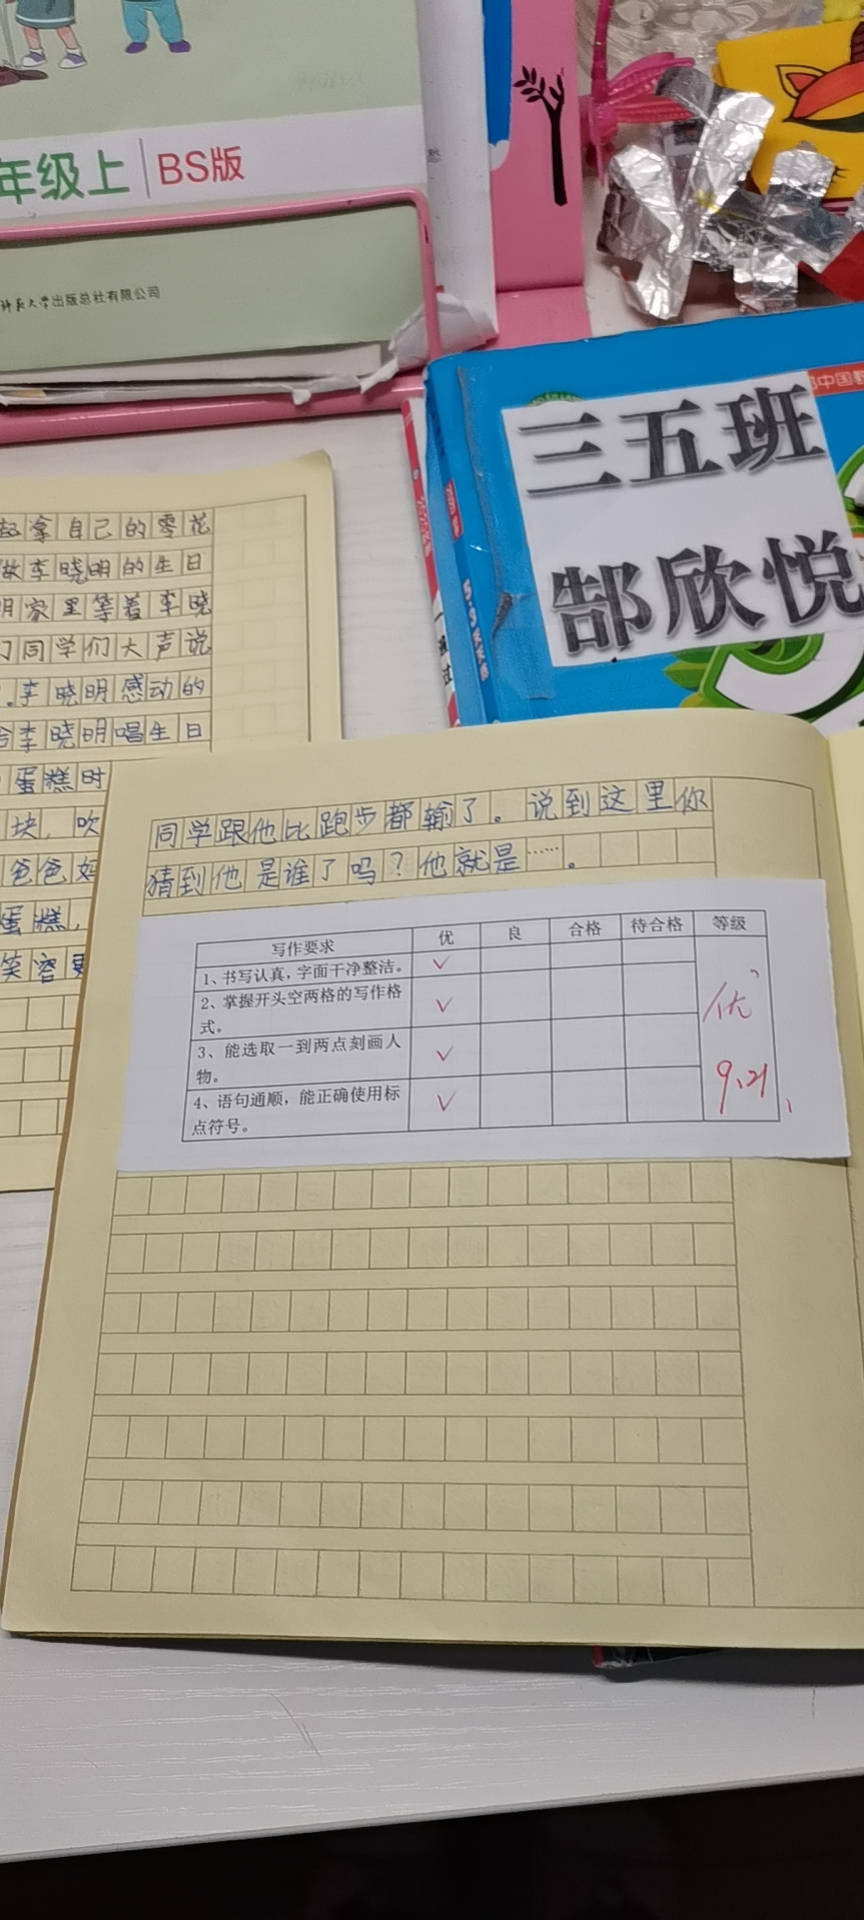 年级上 BS版
大学出版总社有限公司
三五班
郜欣悦
拿自己的零花
做李晓明的生日
家里等着李晓
同学们大声说
李晓明感动的
李晓明唱生日
蛋糕时
块，吹
爸爸妈
蛋糕，
笑容
同学跟他比跑步都输了。说到这里你
猜到他是谁了吗？他就是……。
写作要求 优 良 合格 待合格 等级
1、书写认真，字面干净整洁。 ✓
2、掌握开头空两格的写作格
式。 ✓
3、能选取一到两点刻画人
物。 ✓
4、语句通顺，能正确使用标
点符号。 ✓
优
9.21